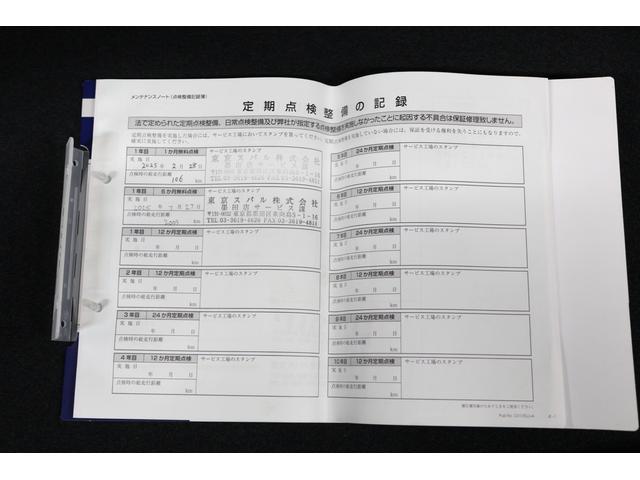 メンテナンスノート(点検整備記録簿)
定期点検整備の記録
法で定められた定期点検整備、日常点検整備及び弊社が指定する点検整備を実施しなかったことに起因する不具合は保証修理致しません。
定期点検整備を実施した場合には、サービス工場においてスタンプを貰ってください。
していない場合には、保証を受ける権利を失うことにもなりますので、
確実に実施してください。
1年目 1か月無料点検
サービス工場のスタンプ
実施日 2025年2月28日
点検時の総走行距離
106 km
東京スバル株式会社
墨田店サービス課
1年目 6か月無料点検
サービス工場のスタンプ
2025年7月27日
点検時の総走行距離
km
東京スバル株式会社
墨田店サービス課
〒131-0032 東京都墨田区東向島5-1-16
TEL 03-3619-4626 FAX 03-3619-4811
1年目 12か月定期点検
サービス工場のスタンプ
実施日
年 月 日
点検時の総走行距離
km
2年目 12か月定期点検
サービス工場のスタンプ
実施日
年 月 日
点検時の総走行距離
km
3年目 24か月定期点検
サービス工場のスタンプ
実施日
年 月 日
点検時の総走行距離
km
4年目 12か月定期点検
サービス工場のスタンプ
実施日
年 月 日
点検時の総走行距離
km
5年目 24か月定期点検
サービス工場のスタンプ
実施日
年 月 日
点検時の総走行距離
km
6年目 12か月定期点検
サービス工場のスタンプ
実施日
年 月 日
点検時の総走行距離
km
7年目 24か月定期点検
サービス工場のスタンプ
実施日
年 月 日
点検時の総走行距離
km
8年目 12か月定期点検
サービス工場のスタンプ
実施日
年 月 日
点検時の総走行距離
km
9年目 24か月定期点検
サービス工場のスタンプ
実施日
年 月 日
点検時の総走行距離
km
10年目 12か月定期点検
サービス工場のスタンプ
実施日
年 月 日
点検時の総走行距離
km